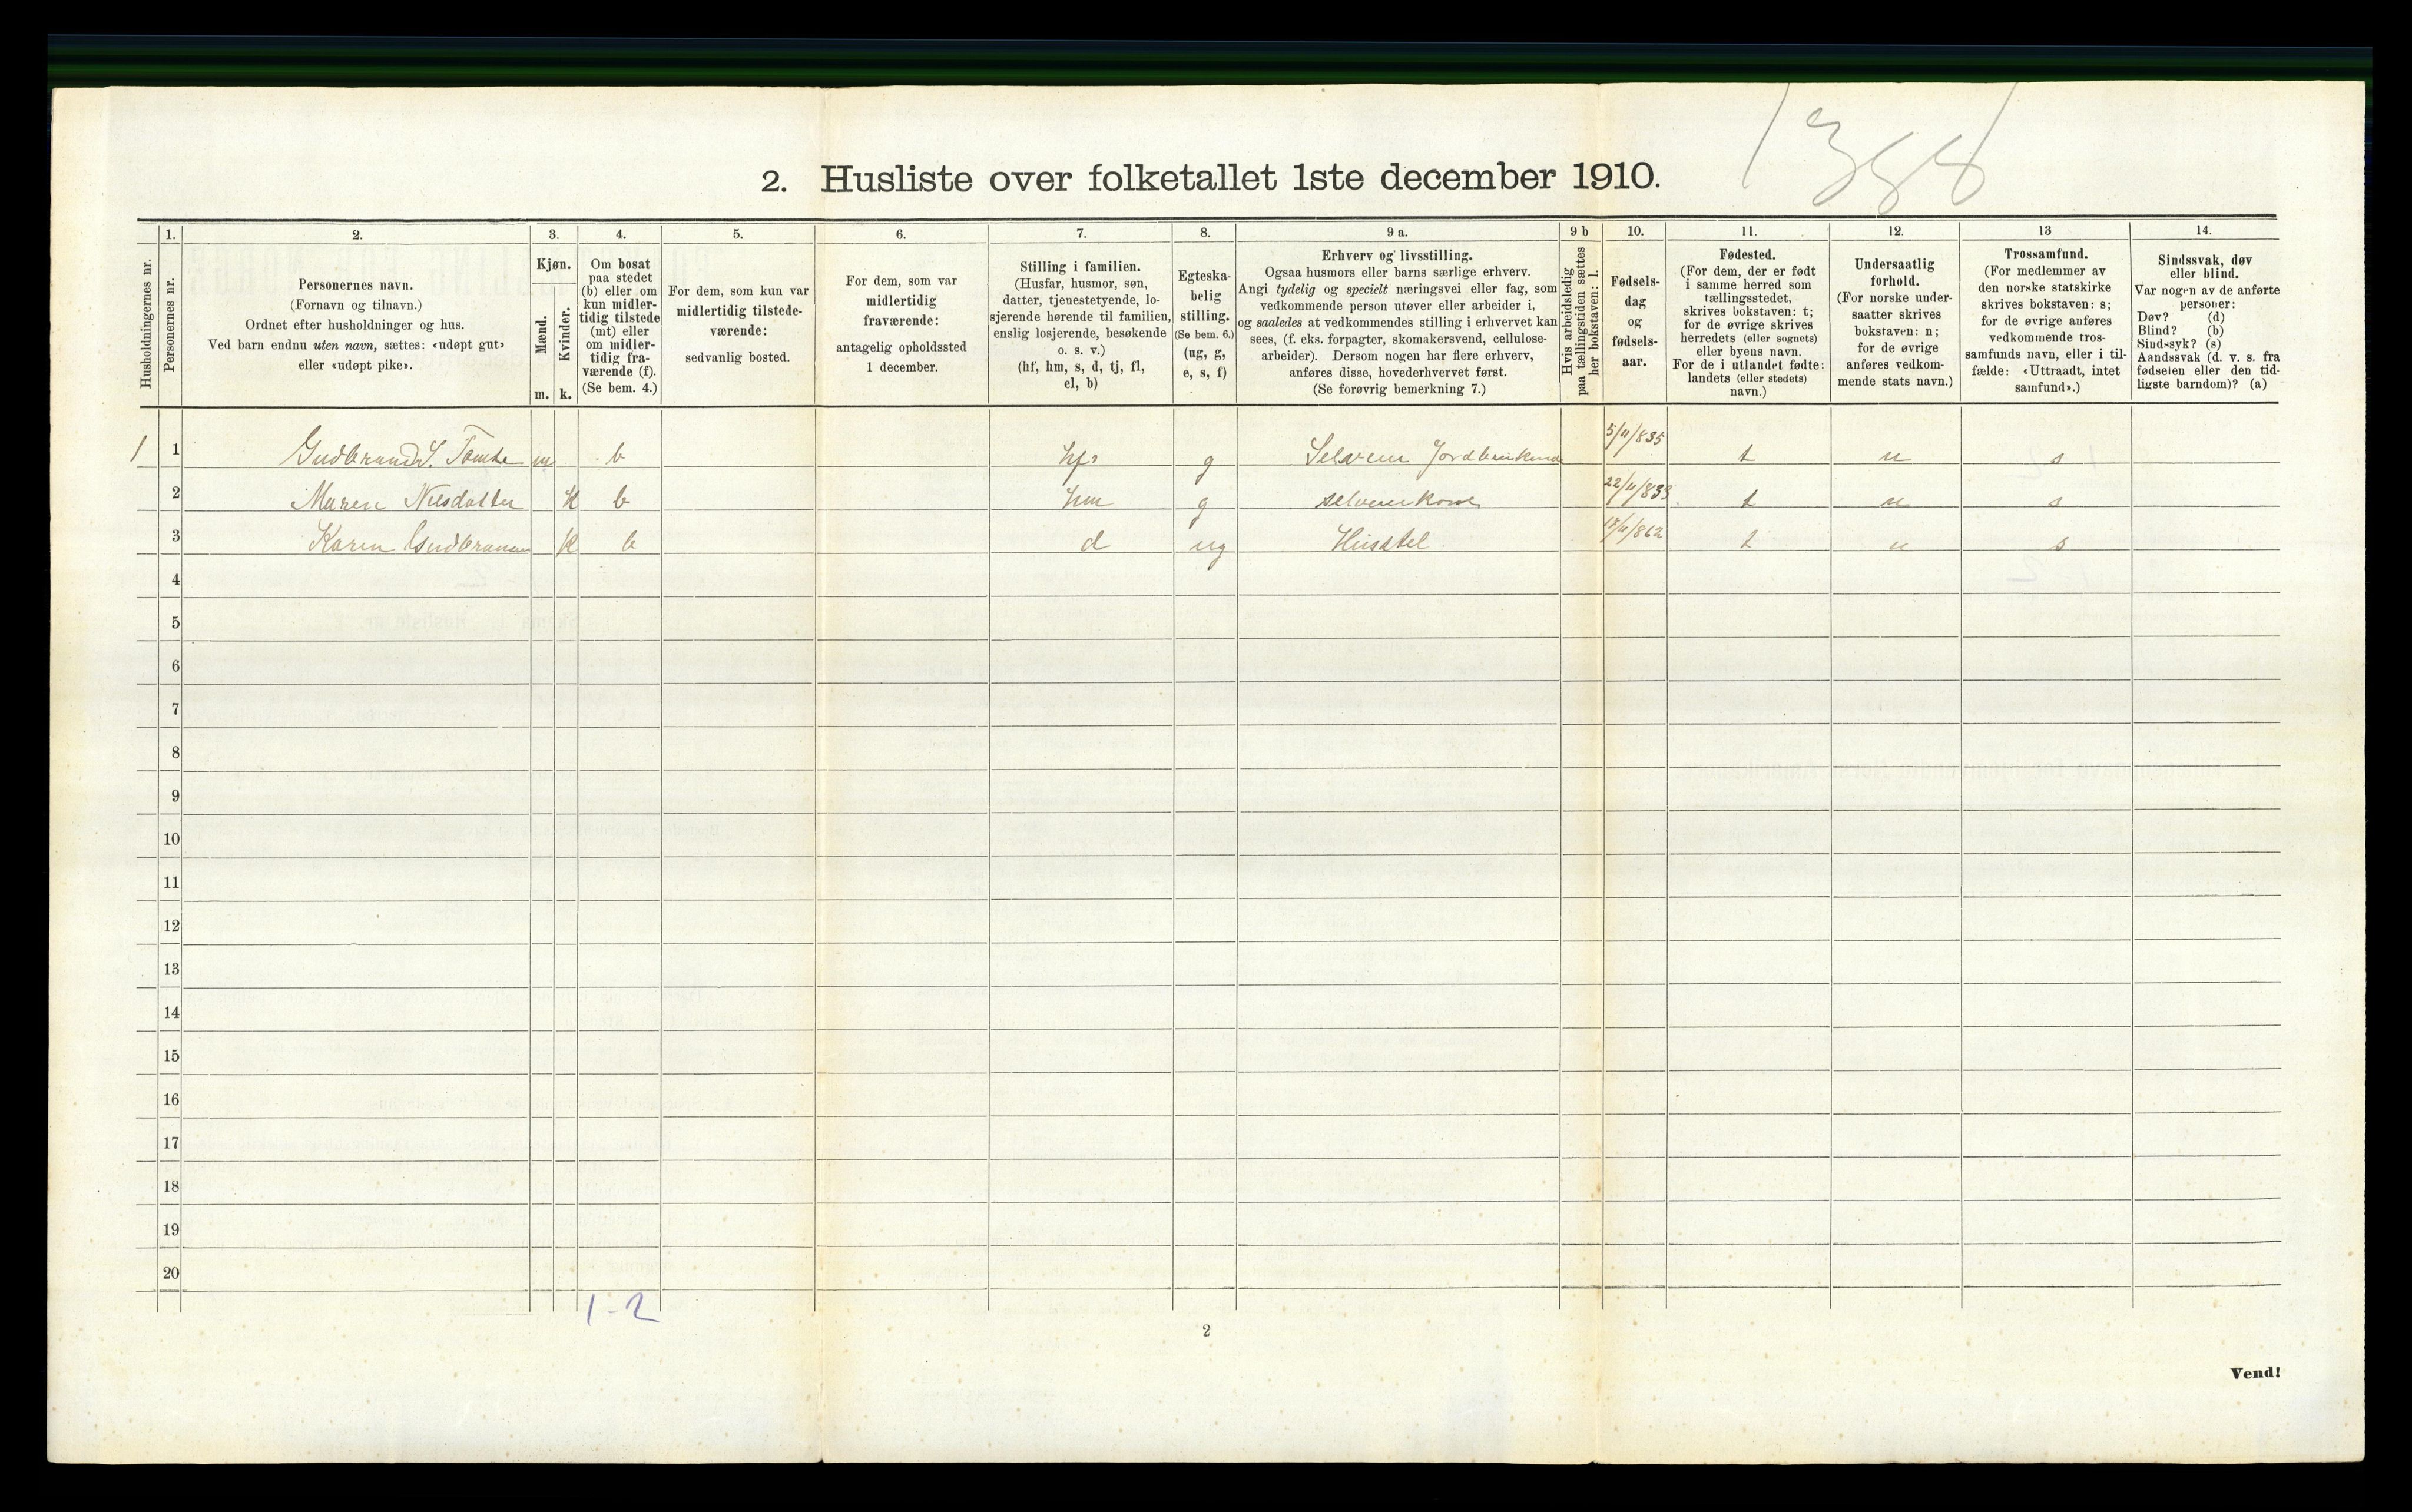 2. Husliste over folketallet 1ste december 1910.
Husholdningernes nr.
1.
Personernes nr.
2.
Personernes navn.
(Fornavn og tilnavn.)
Ordnet efter husholdninger og hus.
Ved barn endnu uten navn, sættes: «udøpt gut»
eller «udøpt pike».
3.
Kjøn.
Mænd.
Kvinder.
m. k.
4.
Om bosat
paa stedet
(b) eller om
kun midler-
tidig tilstede
(mt) eller
om midler-
tidig fra-
værende (f).
(Se bem. 4.)
5.
For dem, som kun var
midlertidig tilstede-
værende:
sedvanlig bosted.
6.
For dem, som var
midlertidig
fraværende:
antagelig opholdssted
1 december.
7.
Stilling i familien.
(Husfar, husmor, søn,
datter, tjenestetyende, lo-
sjerende hørende til familien,
enslig losjerende, besøkende
o. s. v.)
(hf, hm, s, d, tj, fl,
el, b)
8.
Egteska-
belig
stilling.
(Se bem. 6.)
(ug, g,
e, s, f)
9 a.
Erhverv og livsstilling.
Ogsaa husmors eller barns særlige erhverv.
Angi tydelig og specielt næringsvei eller fag, som
vedkommende person utøver eller arbeider i,
og saaledes at vedkommendes stilling i erhvervet kan
sees, (f. eks. forpagter, skomakersvend, cellulose-
arbeider). Dersom nogen har flere erhverv,
anføres disse, hovederhvervet først.
(Se forøvrig bemerkning 7.)
9 b
Hvis arbeidsledig
paa tællingstiden sættes
her bokstaven: l.
10.
Fødsels-
dag
og
fødsels-
aar.
11.
Fødested.
(For dem, der er født
i samme herred som
tællingsstedet,
skrives bokstaven: t;
for de øvrige skrives
herredets (eller sognets)
eller byens navn.
For de i utlandet fødte:
landets (eller stedets)
navn.)
12.
Undersaatlig
forhold.
(For norske under-
saatter skrives
bokstaven: n;
for de øvrige
anføres vedkom-
mende stats navn.)
13
Trossamfund.
(For medlemmer av
den norske statskirke
skrives bokstaven: s;
for de øvrige anføres
vedkommende tros-
samfunds navn, eller i til-
fælde: «Uttraadt, intet
samfund».)
14.
Sindssvak, døv
eller blind.
Var nogen av de anførte
personer:
Døv? (d)
Blind? (b)
Sindssyk? (s)
Aandssvak (d. v. s. fra
fødselen eller den tid-
ligste barndom)? (a)
1 1 Gudbrand S. Tomte m b hf g Selveier Jordbrukende 5/11/835 t n s
2 Maren Nilsdatter k b hm g selveierkone t n s
3 Karen Gudbrandsen k b d ug Husstel t n s
4
5
6
7
8
9
10
11
12
13
14
15
16
17
18
19
20
1-2
2
Vend!